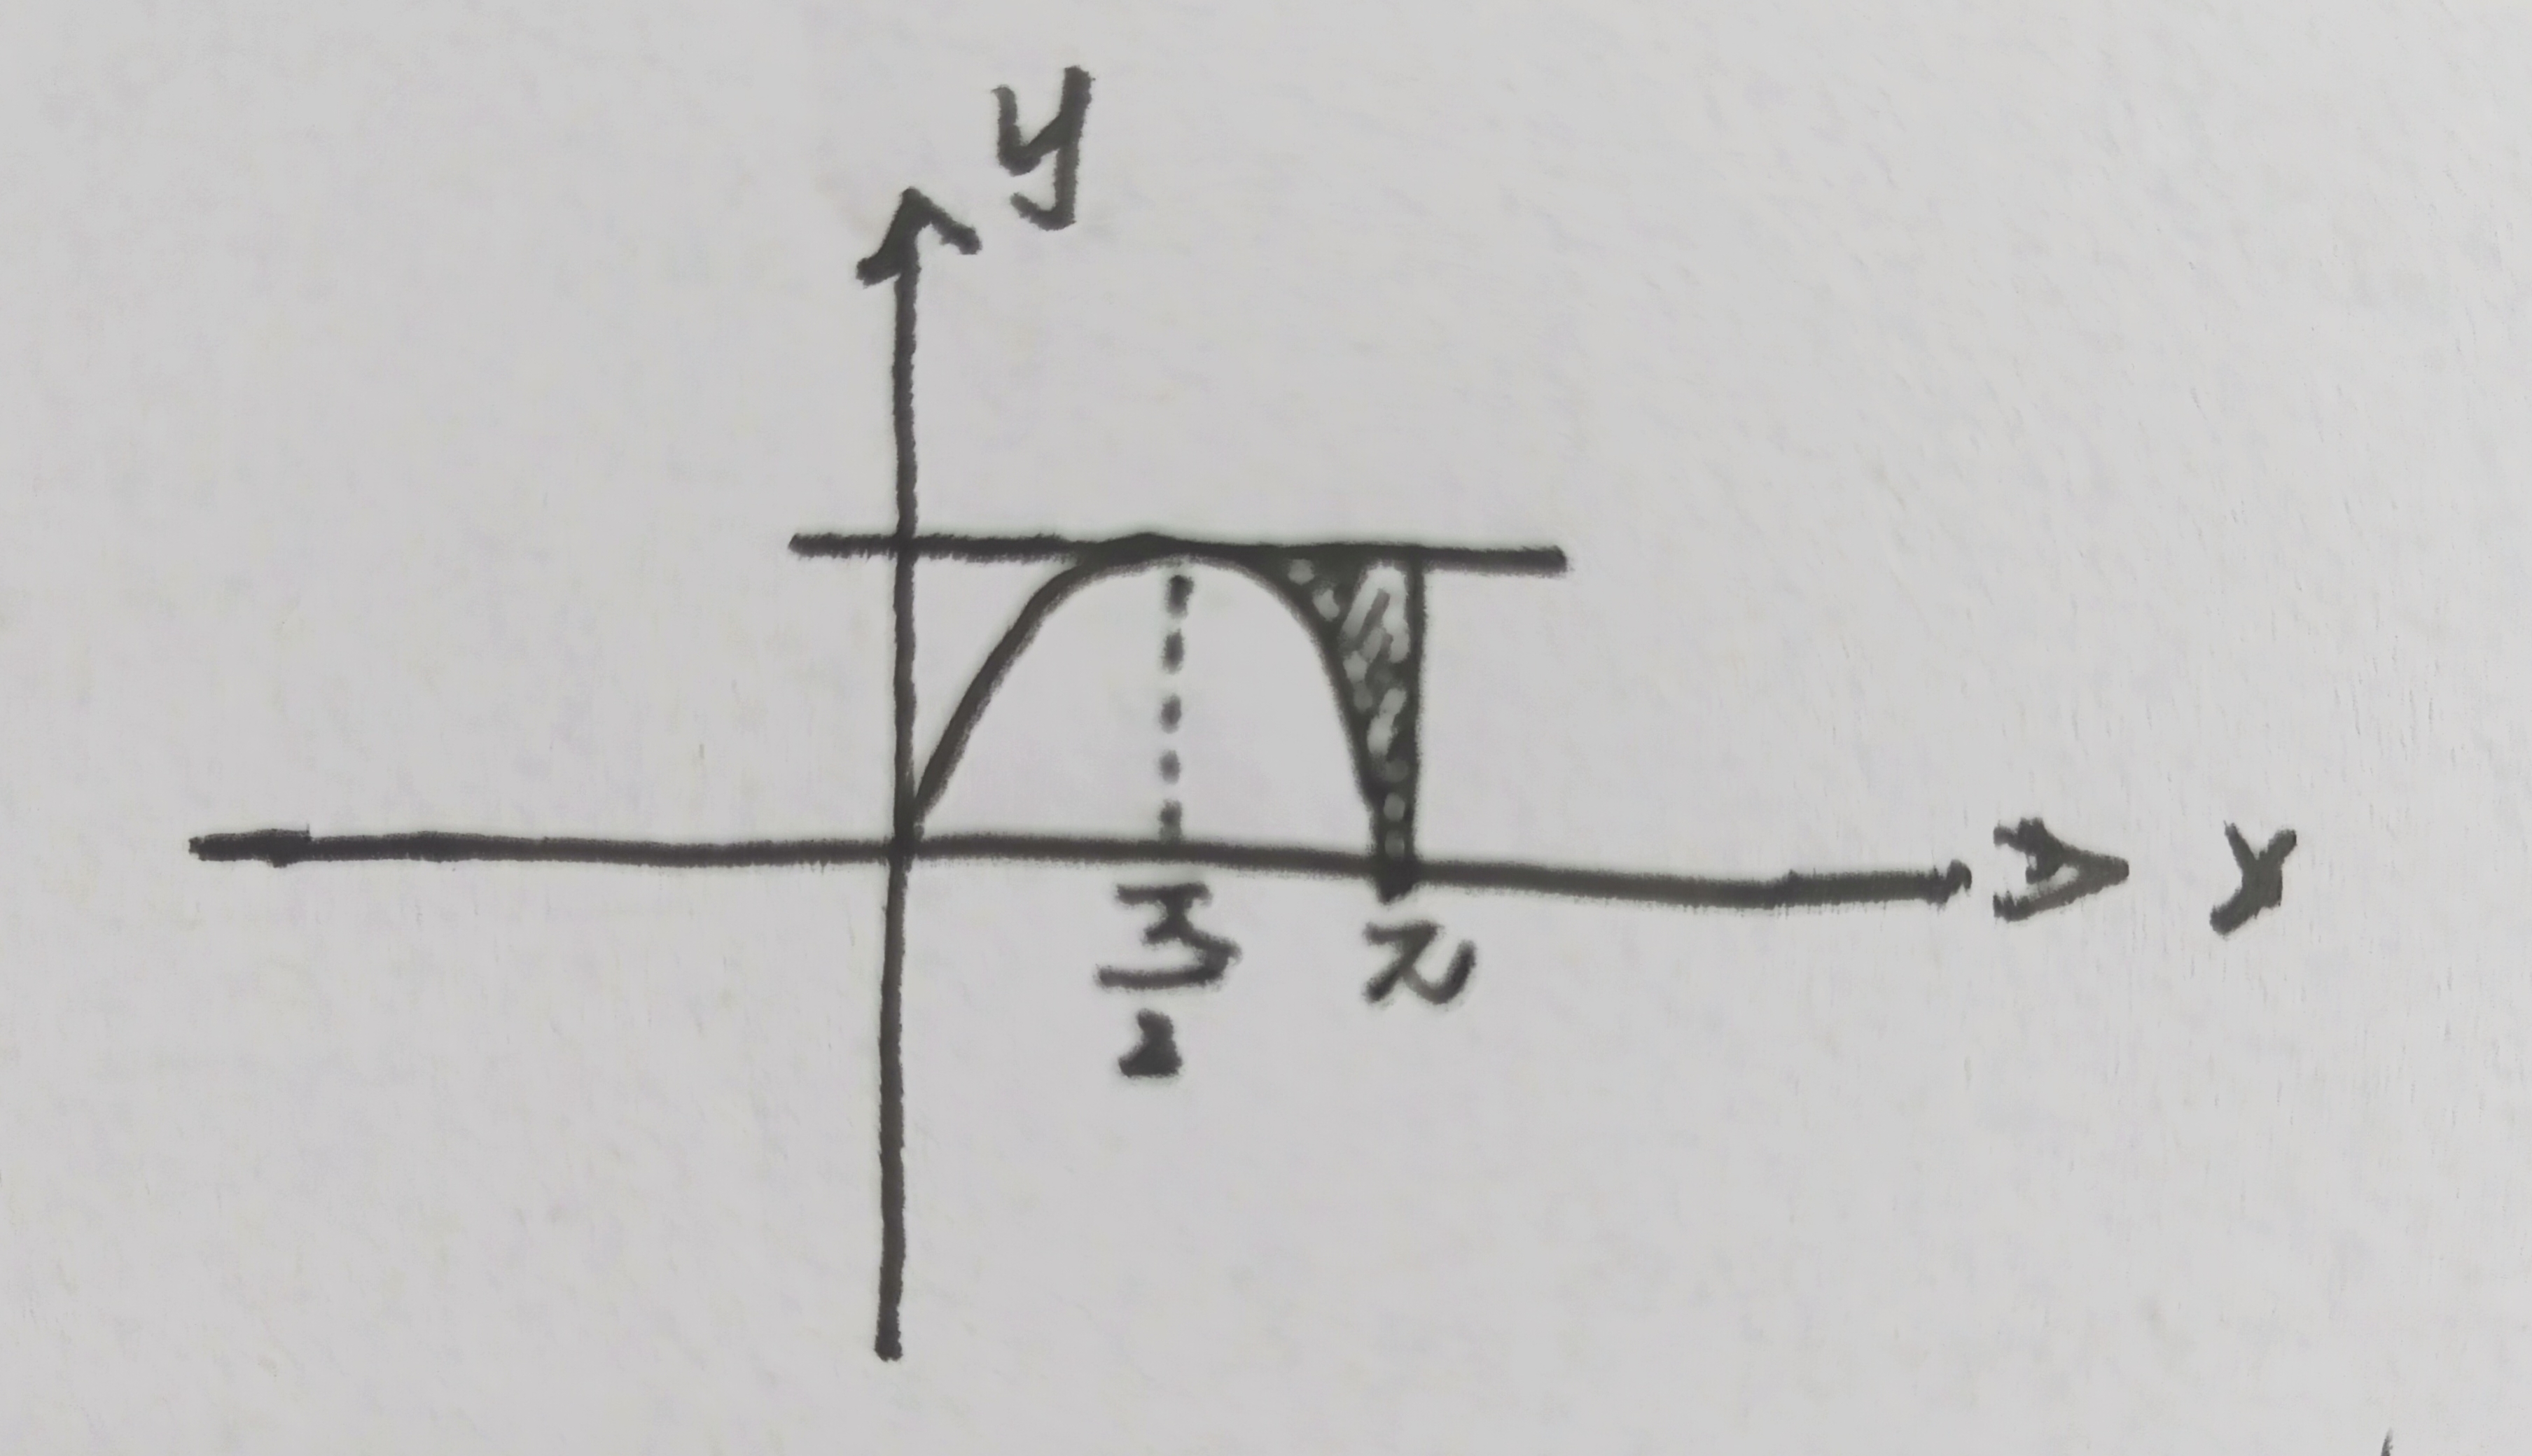 y
x
π/2
π